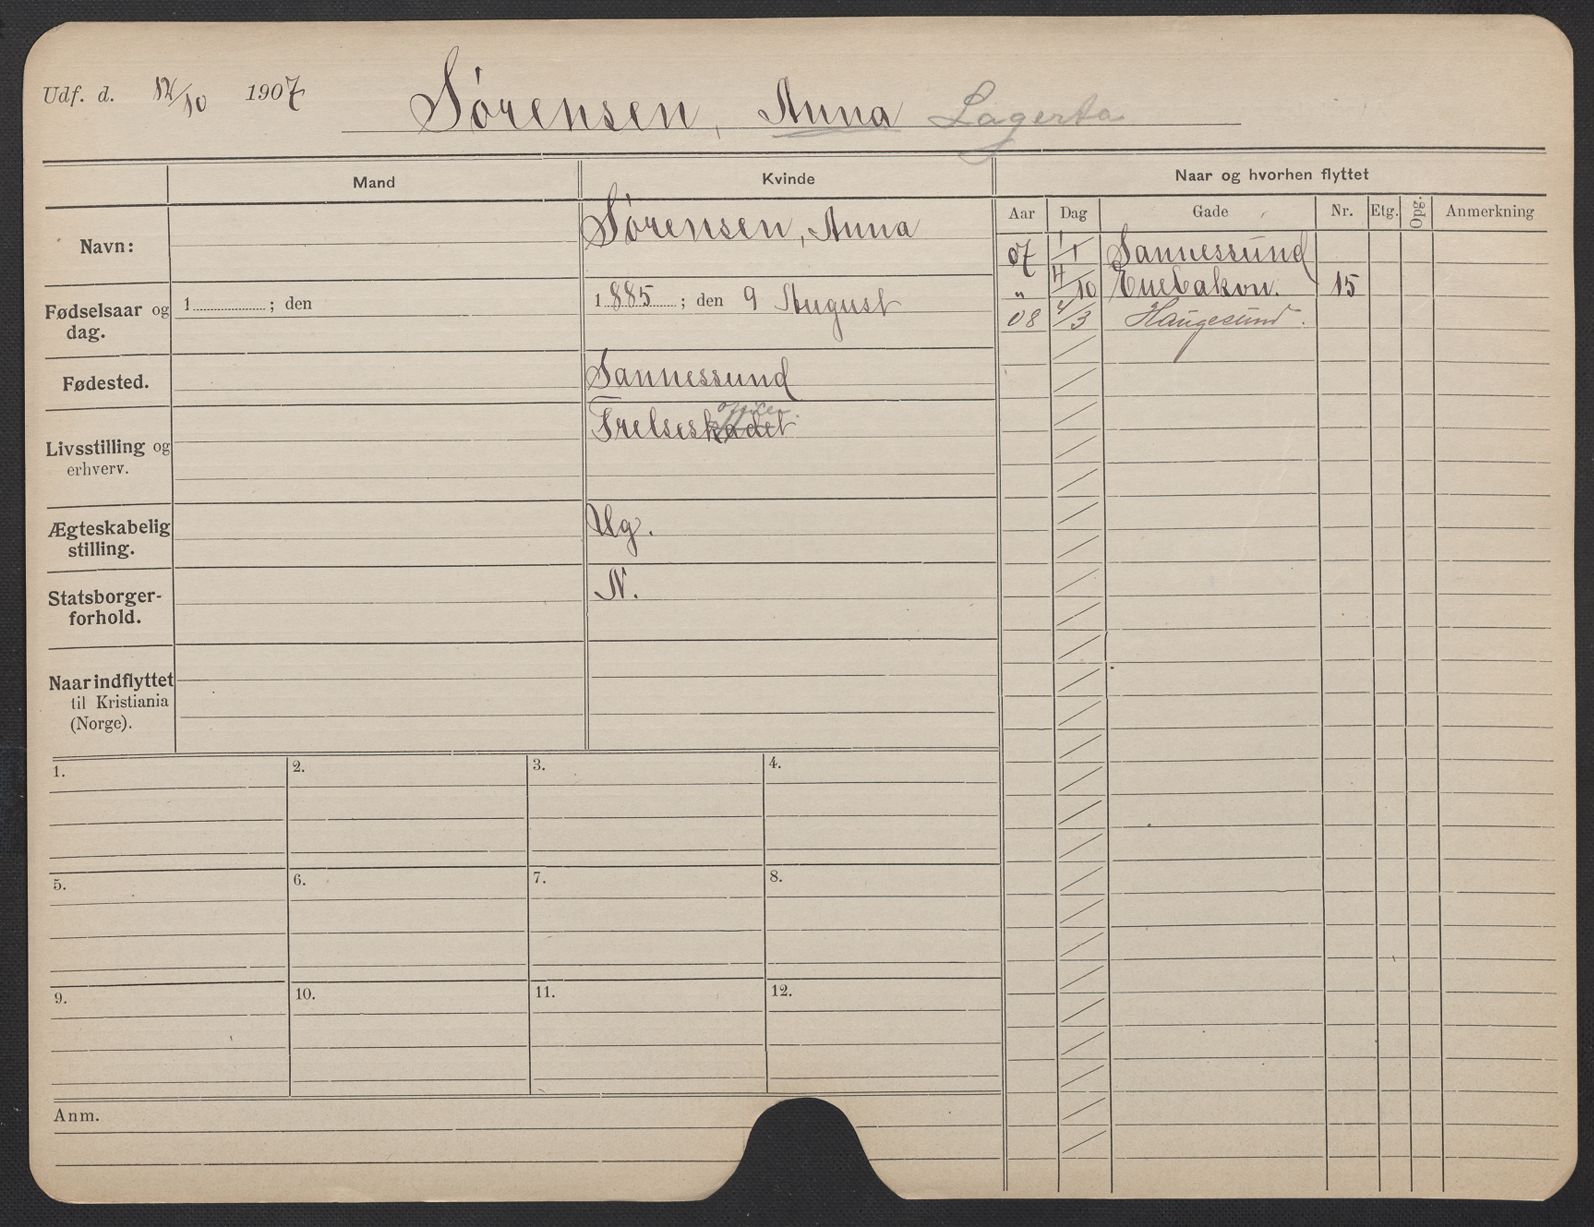 Udf. d. 12/10 1907 Sørensen, Anna Lagerta
Mand Kvinde Naar og hvorhen flyttet
Aar Dag Gade Nr. Etg. Opg. Anmerkning
Navn: Sørensen, Anna
07 1/1 Sannessund
" 4/10 Enebakvn. 15
08 4/3 Haugesund.
Fødselsaar og dag. 1 ; den 1885 ; den 9 August
Fødested. Sannessund
officer.
Livsstilling og Frelseskadet
erhverv.
Ægteskabelig stilling. Ug.
Statsborger-forhold. N.
Naar indflyttet
til Kristiania
(Norge).
1. 2. 3. 4.
5. 6. 7. 8.
9. 10. 11. 12.
Anm.